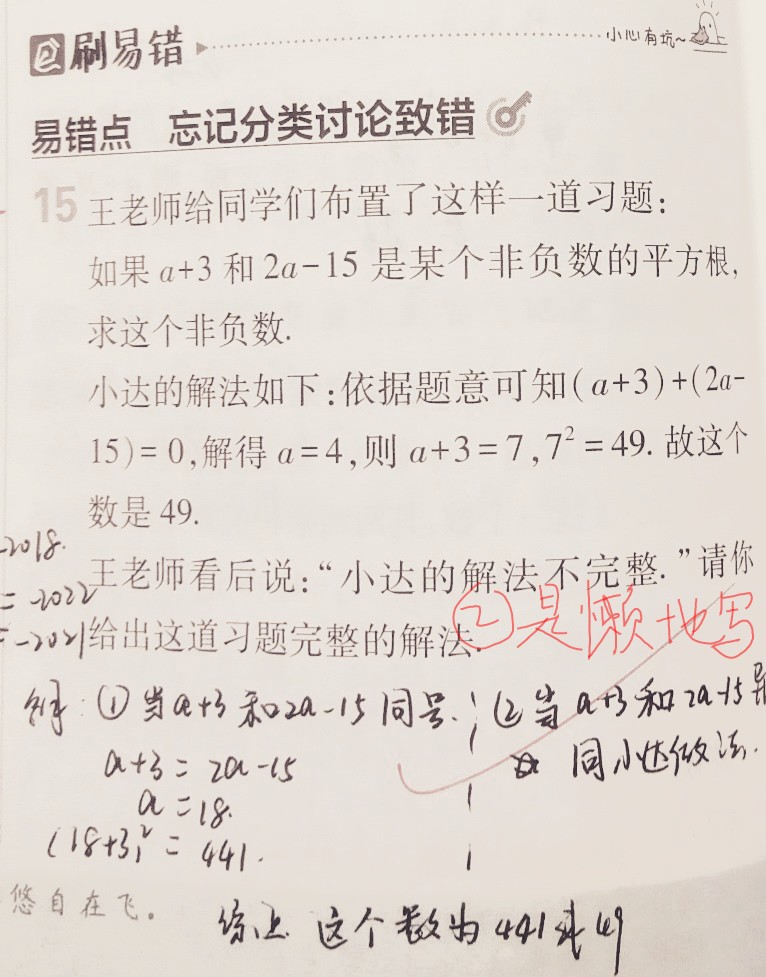 刷易错
小心有坑~
易错点 忘记分类讨论致错
15 王老师给同学们布置了这样一道习题:
如果 a+3 和 2a-15 是某个非负数的平方根,
求这个非负数.
小达的解法如下:依据题意可知(a+3)+(2a-
15)=0,解得 a=4,则 a+3=7,7²=49. 故这个
数是 49.
-2018.
王老师看后说:“小达的解法不完整.”请你
= -2022
给出这道习题完整的解法.
= -2021
②是懒地写
解:①当a+3和2a-15同号.
a+3=2a-15
a=18.
(18+3)²=441.
②当a+3和2a-15异
同小达做法.
悠自在飞。
综上 这个数为441或49